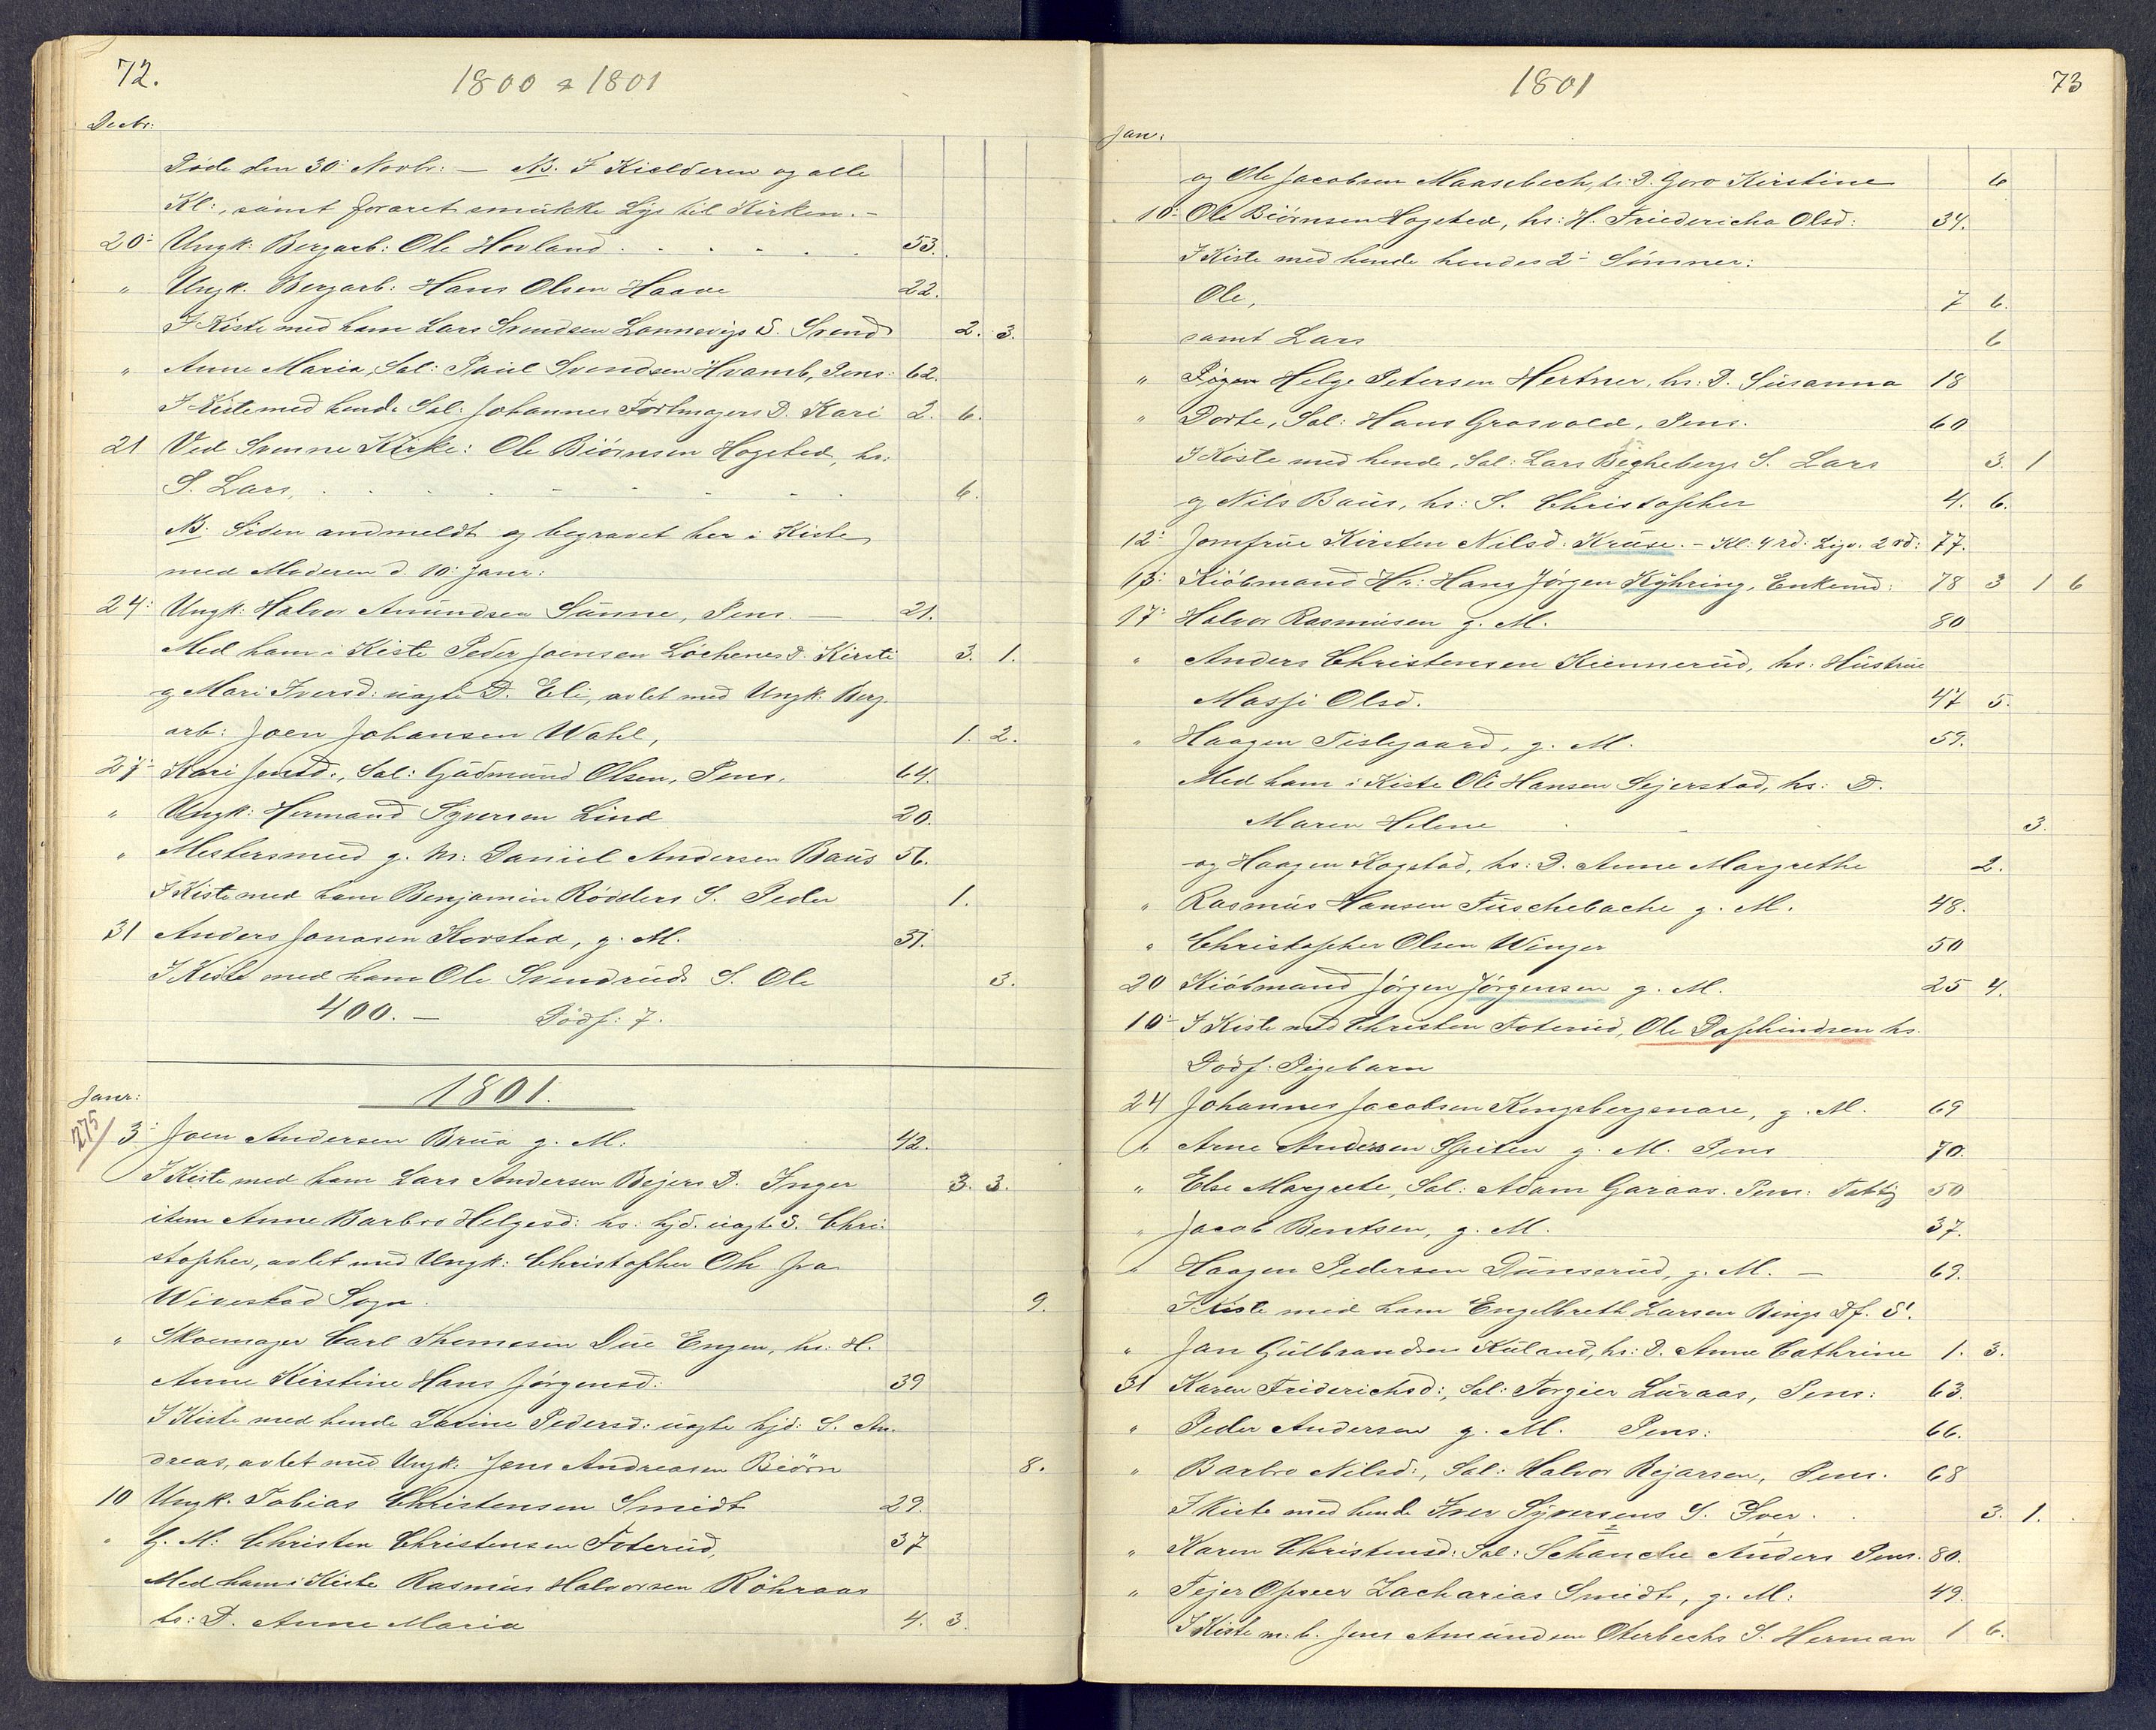 72.
1800 & 1801
Decbr:
Døde den 30: Novbr: — NB. I Kielderen og alle
Kl:, samt foraret smukke Lys til Kirken. -
20: Ungk: Bergarb: Ole Hovland 53.
" Ungk. Bergarb: Hans Olsen Haave 22.
I Kiste med ham Lars Svendsen Lonnevigs S. Svend 2. 3.
" Anne Maria, Sal: Paul Svendsen Hvamb, Pens: 62.
I Kiste med hende Sal: Johannes D. Kari 2. 6.
21 Ved Svenne Kirke: Ole Biörnsen Hogsted, hs:
S. Lars, 6.
NB: Siden andmeldt og begravet her i Kiste
med Moderen d. 10: Janr:
24: Ungk: Halvor Amundsen Sunne, Pens. — 21.
Med ham i Kiste Peder Joensen Löchenes D. Kirsti 3. 1.
og Mari Iversd: uægte D. Eli, avlet med Ungk: Berg.
arb: Joen Johansen Wahl, 1. 2.
27: Kari Jensd:, Sal: Gudmund Olsen, Pens. 64.
" Ungk: Hermand Syversen Lind 20.
" Mestersmed g. M: Daniel Andersen Baus 56.
I Kiste med ham Benjamin Rödders S. Peder 1.
31 Anders Jonasen Korstad, g. M. 31.
I Kiste med ham Ole Svendruds S. Ole 3.
400. — Dödf: 7.
1801.
Janr:
275/
3: Joen Andersen Brua g. M: 42.
I Kiste med ham Lars Andersen Bejers D. Inger 3. 3.
item Anne Barbro Helgesd: hs: hjd. uagte S. Chri-
stopher, avlet med Ungk: Christopher Ole fra
Wivestad Sogn. 9.
" Skoemager Carl Thomesen Due Engen, hs: H.
Anne Kirstine Hans Jørgensd: 39
I Kiste med hende Sarine Pedersd: uagte hjd: S. An-
dreas, avlet med Ungk: Jens Andreasen Beörn 8.
10 Ungk. Tobias Christensen Smidt 29.
" G. M: Christen Christensen Foterud, 37
Med ham i Kiste Rasmus Halvorsen Röhraas
hs: D. Anne Maria 4. 3.
1801
73
Jan:
og Ole Jacobsen Maasebech, hs: D. Goro Kirstine 6
10: Ole Biörnsen Hogsted, hs: H. Friedericha Olsd: 34.
I Kiste med hende hendes 2: Sönner:
Ole, 7 6.
samt Lars 6
" Pigen Helge Petersen Hertner, hs: D. Susanna 18
" Dorte, Sal: Hans Grosvold, Pens. 60
I Kiste med hende, Sal: Lars Beghebergs S. Lars 3. 1
og Nils Baus, hs: S. Christopher 4. 6.
12: Jomfrue Kirsten Nilsd: Kruse. - Kl: 4 rd: Ligv. 2 rd: 77.
13: Kiöbmand Hr: Hans Jørgen Kÿhring, Enkemd: 78 3 1 6
17: Halvor Rasmusen g. M. 80
" Anders Christensen Kiennerud, hs: Hustrue
Massi Olsd. 47 5.
" Haagen Tislegaard, g. M. 59.
Med ham i Kiste Ole Hansen Sejerstad, hs: D.
Maren Helene 3.
og Haagen Kogstad, hs: D. Anne Margrethe 2.
" Rasmus Hansen Fuschebache g. M. 48.
" Christopher Olsen Winger 50
20 Kiöbmand Jørgen Jørgensen g. M. 25 4.
10: I Kiste med Christen Foterud, Ole Dafhindsen hs.
Dödf. Pigebarn
24 Johannes Jacobsen Kongsbergsnare, g. M. 69
" Arne Andersen Spiten g. M. Pens 70.
" Else Margrete, Sal: Adam Garaas. Pens: Fattig 50
" Jacob Bentsen, g. M. 37.
" Haagen Pedersen Dunserud, g. M. — 69.
I Kiste med ham Engelbreth Larsen Bings Df. S.
" Jan Gulbrandsen Kuland, hs: D. Anne Cathrine 1. 3.
31 Karen Friderichsd:, Sal: Torgier Luraas, Pens: 63.
" Peder Andersen g. M. Pens: 66.
" Barbro Nilsd:, Sal: Halvor Rejarsen, Pens. 68
I Kiste med hende Iver Syversens S. Iver. 3. 1.
" Karen Christensd: Sal: Schanche Anders Pens. 80.
" Fejer Opseer Zacharias Smidt, g. M: 49.
I Kiste m. h. Jens Amundsen Oterbechs S. Herman 1 6.